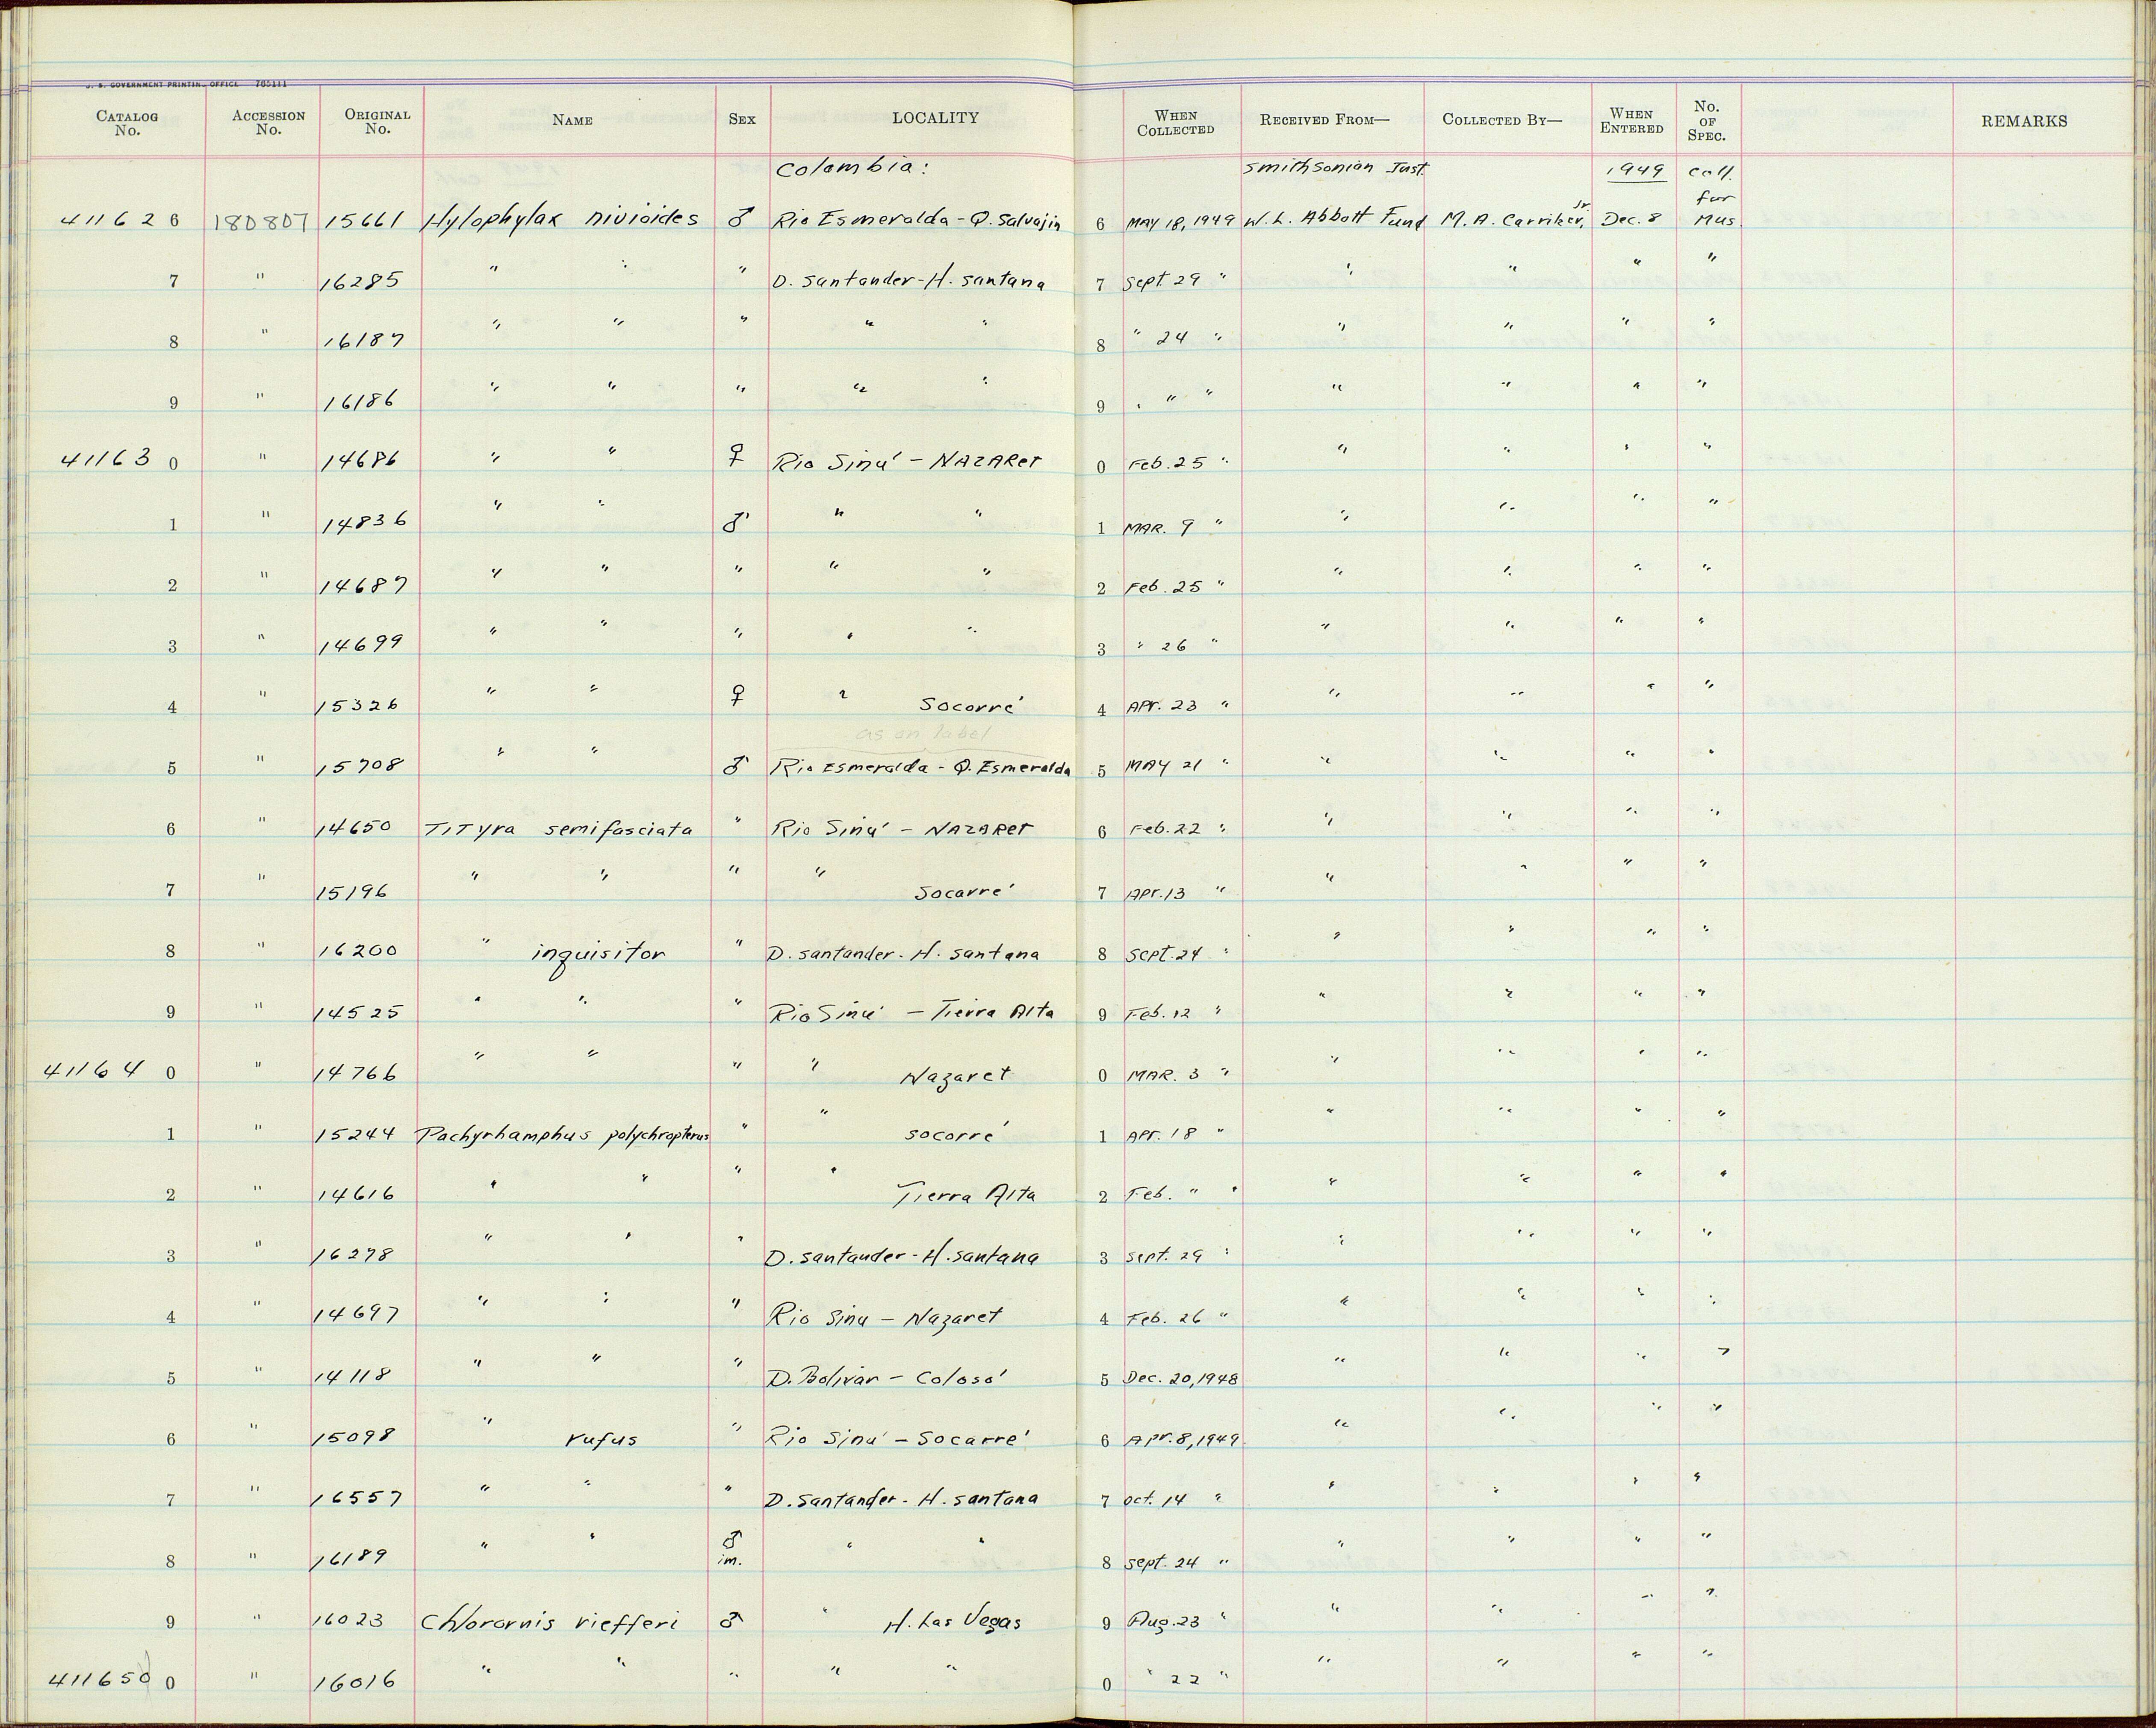 U. S. GOVERNMENT PRINTING OFFICE 765111
CATALOG No. ACCESSION No. ORIGINAL No. NAME SEX LOCALITY WHEN COLLECTED RECEIVED FROM— COLLECTED BY— WHEN ENTERED No. OF SPEC. REMARKS
Colombia: Smithsonian Inst. 1949 coll. for
411626 180807 15661 Hylophylax nivioides ♂ Rio Esmeralda - Q. Salvajin 6 MAY 18, 1949 W. L. Abbott Fund M. A. Carriker, Jr. Dec. 8 Mus.
7 " 16285 " " " D. Santander - H. Santana 7 Sept 29 " " " " "
8 " 16187 " " " " " 8 " 24 " " " " "
9 " 16186 " " " " " 9 " " " " " " "
411630 " 14686 " " ♀ Rio Sinú - NAZARET 0 Feb. 25 " " " " "
1 " 14836 " " ♂ " " 1 MAR. 9 " " " " "
2 " 14687 " " " " " 2 Feb. 25 " " " " "
3 " 14699 " " " " " 3 " 26 " " " " "
4 " 15326 " " ♀ " Socorré 4 APr. 23 " " " " "
as on label
5 " 15708 " " ♂ Rio Esmeralda - Q. Esmeralda 5 MAY 21 " " " " "
6 " 14650 Tityra semifasciata " Rio Sinú - NAZARET 6 Feb. 22 " " " " "
7 " 15196 " " " " Socarré 7 APr. 13 " " " " "
8 " 16200 " inquisitor " D. Santander - H. Santana 8 Sept. 24 " " " " "
9 " 14525 " " " Rio Sinú - Tierra Alta 9 Feb. 12 " " " " "
411640 " 14766 " " " " Nazaret 0 MAR. 3 " " " " "
1 " 15244 Pachyrhamphus polychropterus " " Socorré 1 APr. 18 " " " " "
2 " 14616 " " " " Tierra Alta 2 Feb. " " " " " "
3 " 16278 " " " D. Santander - H. Santana 3 Sept. 29 " " " " "
4 " 14697 " " " Rio Sinu - Nazaret 4 Feb. 26 " " " " "
5 " 14118 " " " D. Bolivar - Colosó 5 Dec. 20, 1948 " " " "
6 " 15098 " rufus " Rio Sinú - Socarré 6 APr. 8, 1949 " " " "
7 " 16557 " " " D. Santander - H. Santana 7 Oct. 14 " " " " "
8 " 16189 " " ♂ im. " " 8 Sept. 24 " " " " "
9 " 16023 Chlorornis riefferi ♂ " H. Las Vegas 9 Aug. 23 " " " " "
411650 0 " 16016 " " " " " 0 " 22 " " " " "